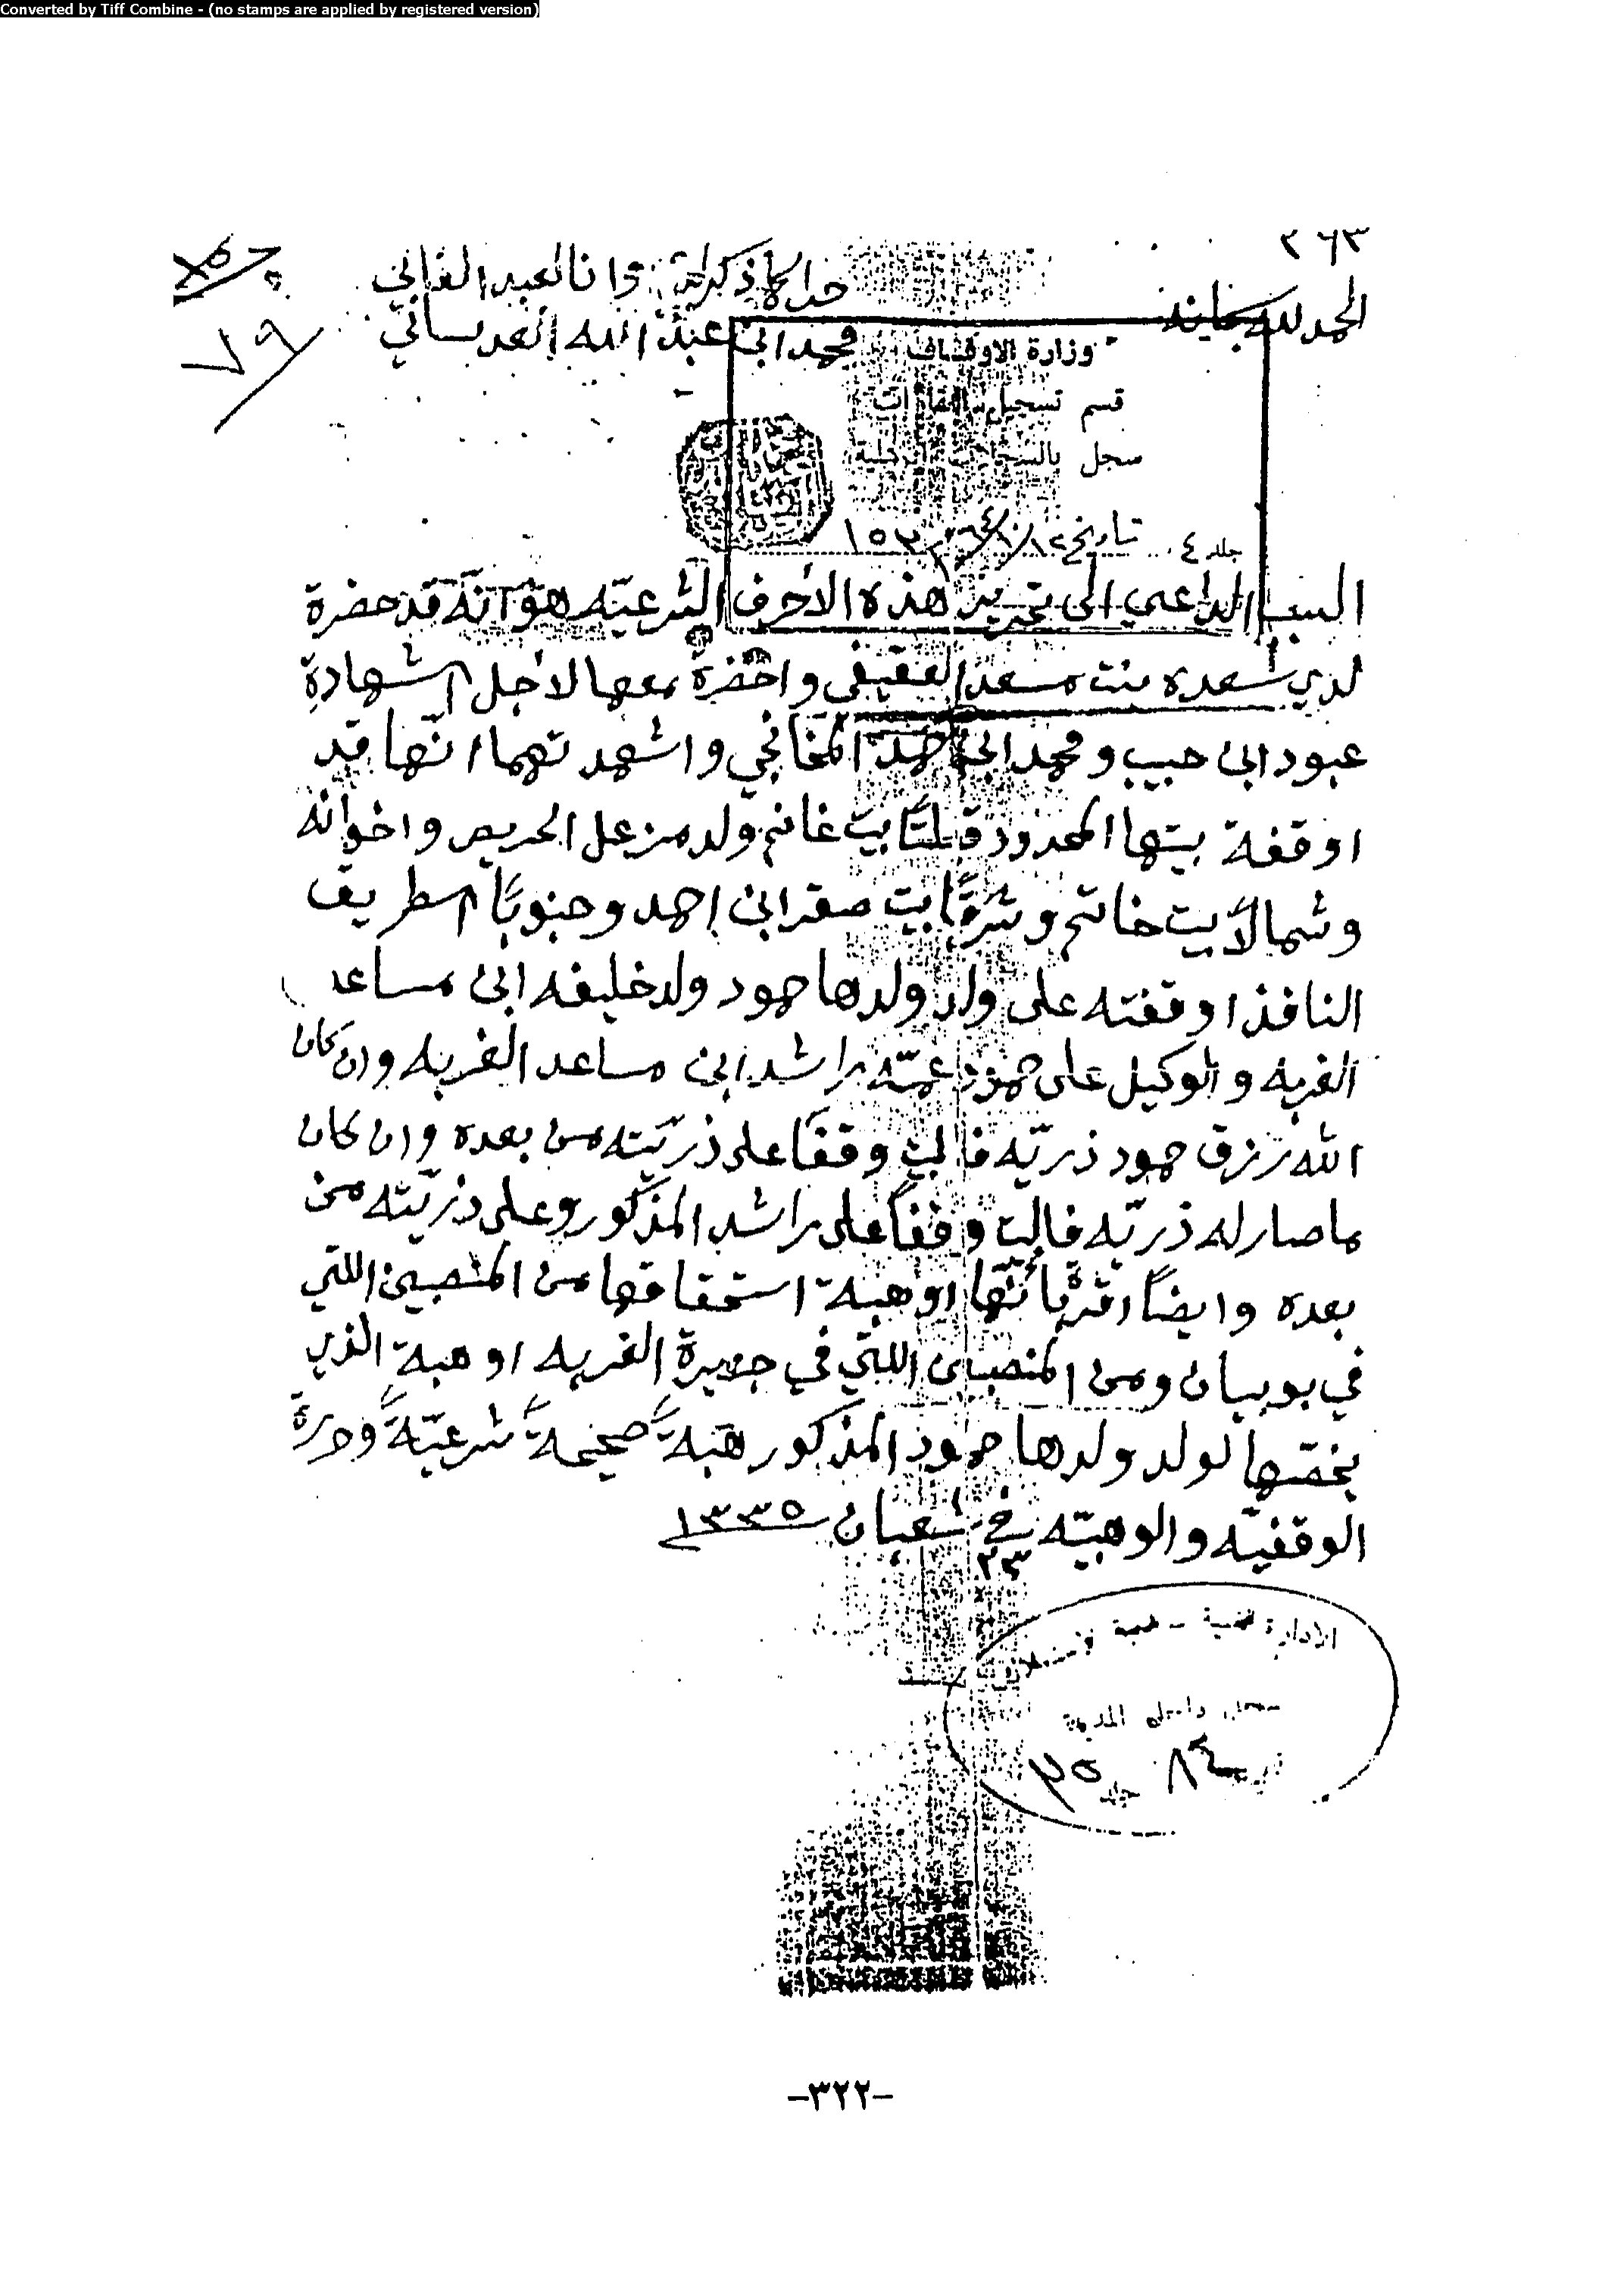 Converted by Tiff Combine - (no stamps are applied by registered version)
٢٦٣
الحمد لله سبحانه
جرا كما ذكر لدي وانا العبد الفاني
محمد ابن عبد الله العدساني
٧٩
وزارة الاوقاف
قسم تسجيل العقارات
سجل بالسجلات
جلد ٤ تاريخ
السبب الداعي الى تحرير هذه الاحرف الشرعيّه هو انّه قد حضرة
لدي سعده بنت مسعد العقيفي واحضرة معها لاجل الشهادة
عبود ابن حبيب ومحمد ابن احمد المخانجي واشهدتهما انّها قد
اوقفة بيتها المحدود قبلتاً بيت غانم ولد مزعل الحريص واخوانه
وشمالاً بيت خاتم وشرقاً بيت صقر ابن احمد وجنوباً الطريق
النافذ اوقفته على ولد ولدها حمود ولد خليفه ابن مساعد
الغربه والوكيل على حمود عمّه راشد ابن مساعد الغربه وان كان
الله رزق حمود ذريّه فالبيت وقفاً على ذريّته من بعده وان كان
ما صار له ذريّه فالبيت وقفاً على راشد المذكور وعلى ذريّته من
بعده وايضاً اقرة بأنّها اوهبة استحقاقها من المنصبين اللتي
في بوبيان ومن المنصبان اللتي في جزيرة الغربه اوهبة الذي
يخصّها لولد ولدها حمود المذكور هبةً صحيحةً شرعيّةً وجرة
الوقفيّه والوهبيّه في ٢٣ شعبان ١٣٣٥
سجل داخل المدينة
٨٤ جلد ٣٥
-٣٢٢-